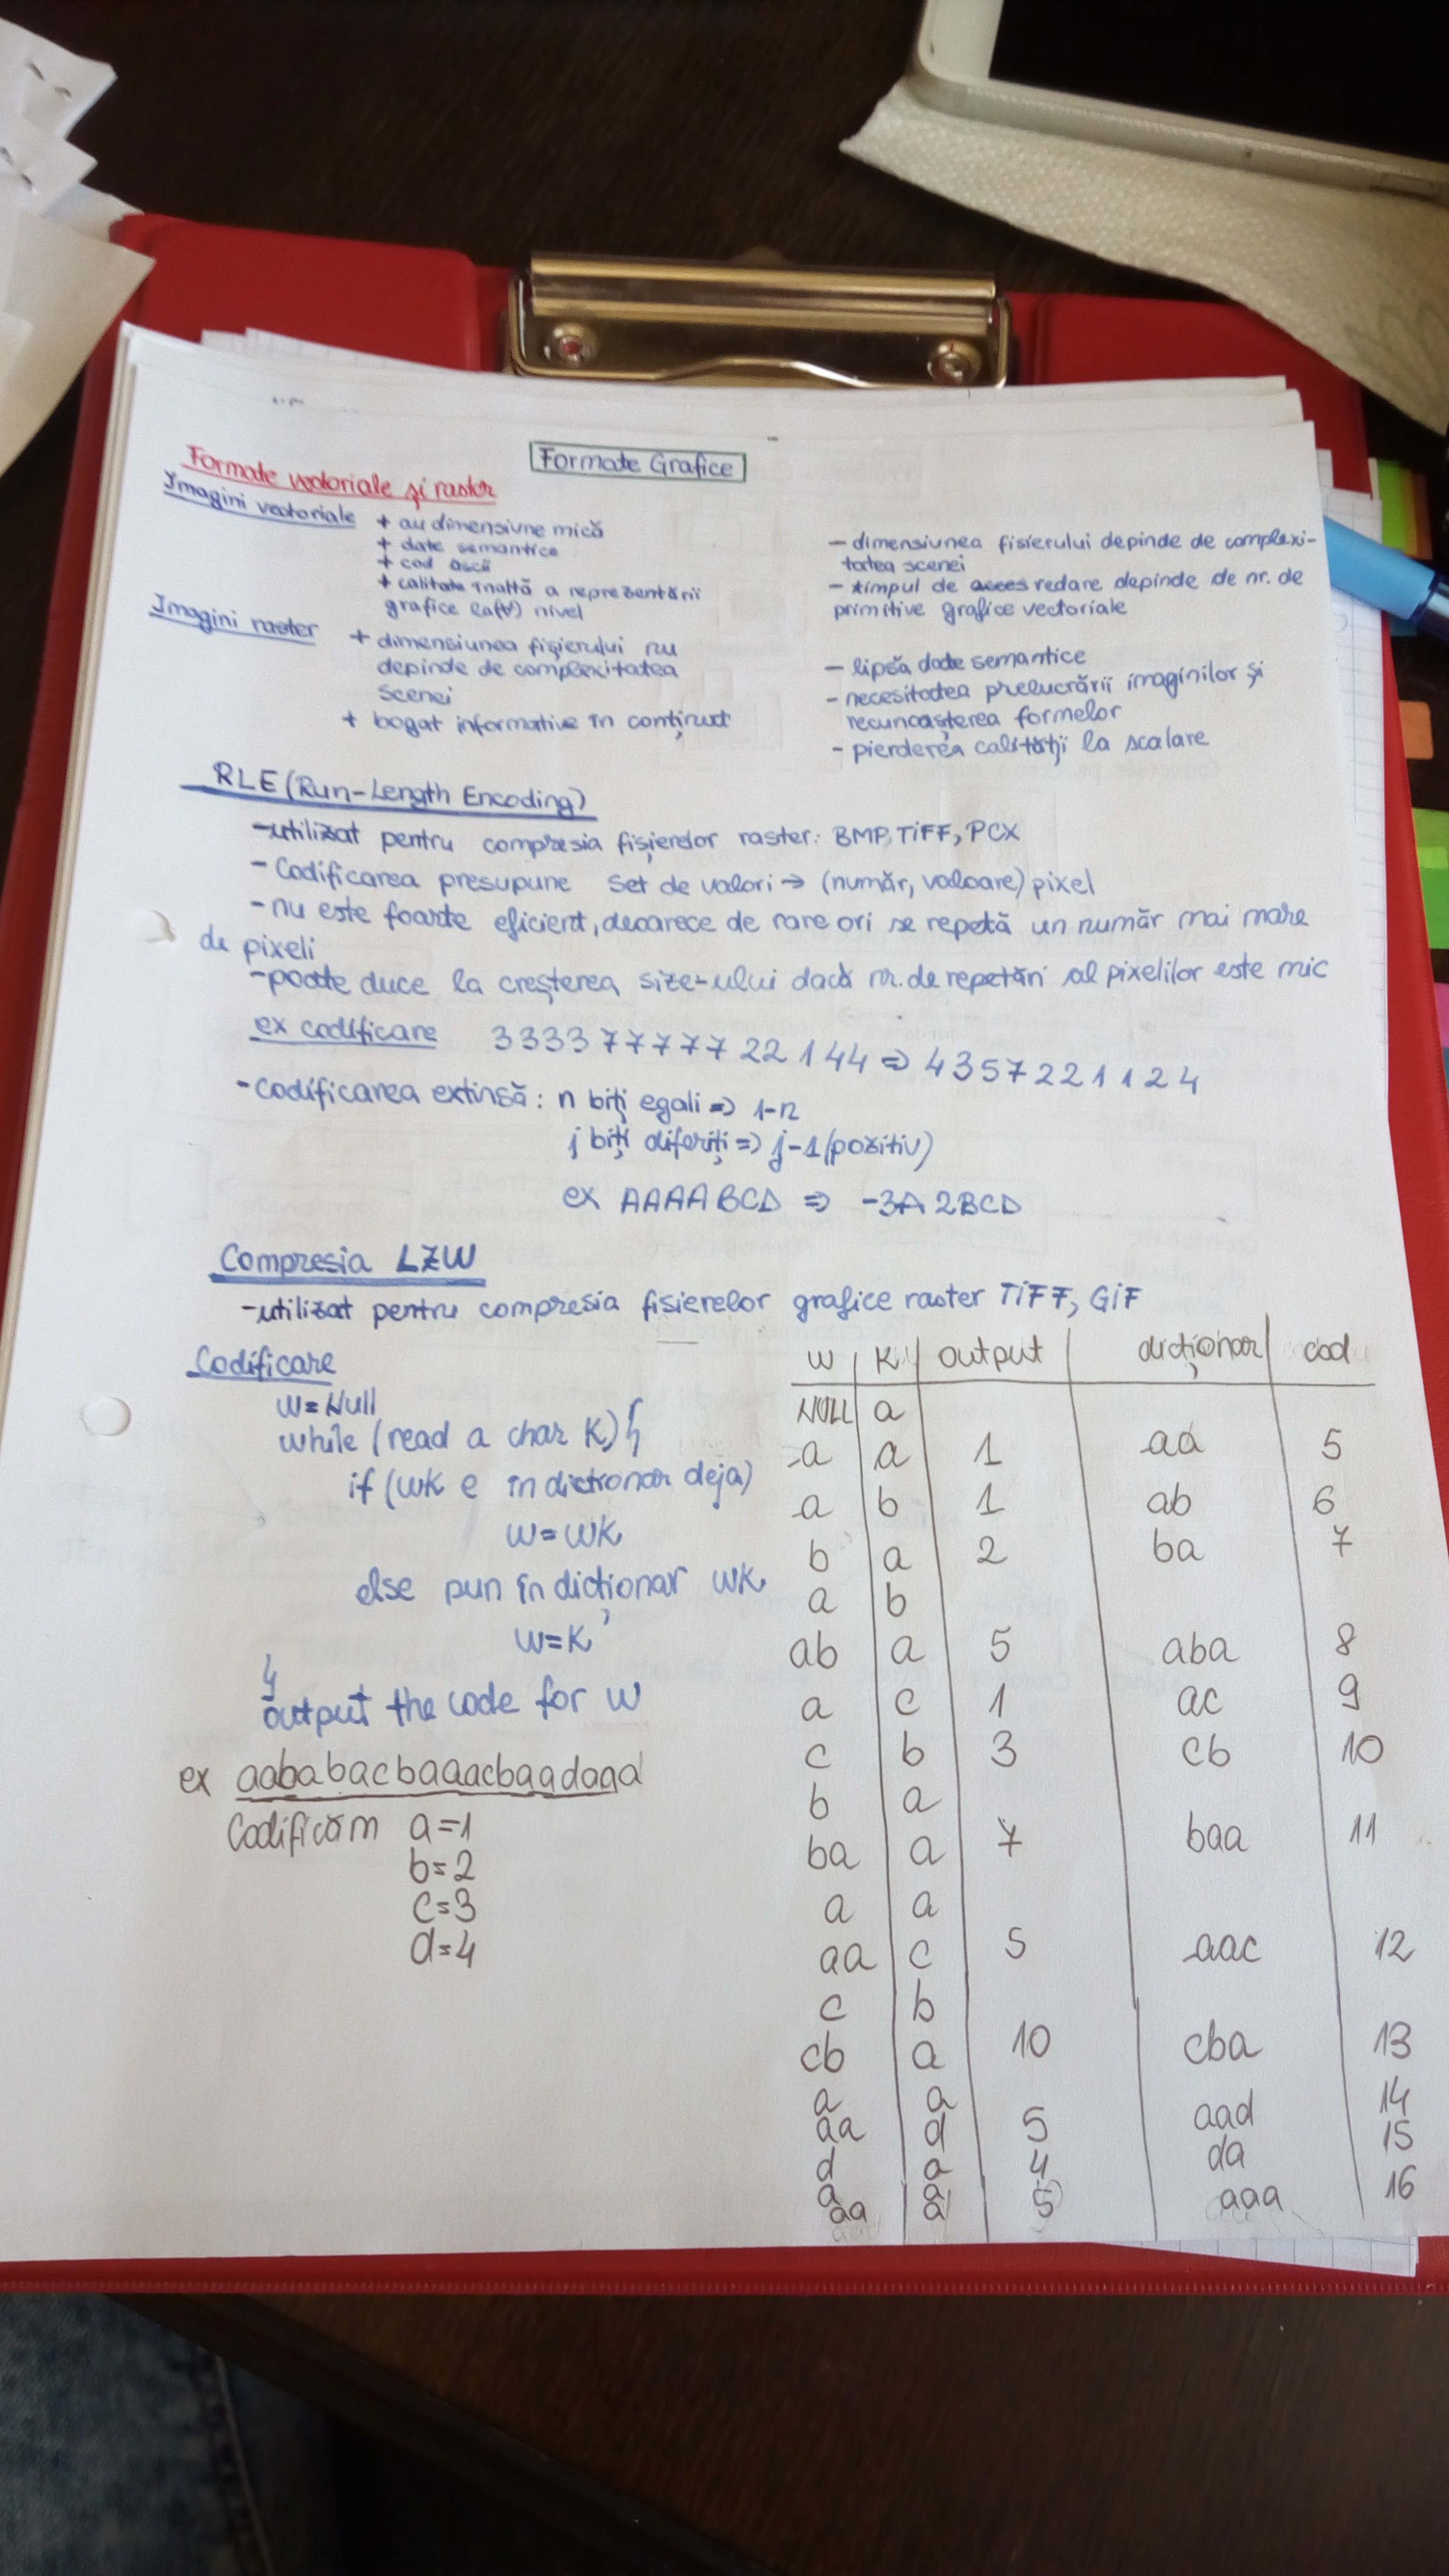 Formate Grafice
Formate vectoriale și raster
Imagini vectoriale + au dimensiune mică
+ date semantice
+ cod ascii
+ calitate înaltă a reprezentării
grafice la (∀) nivel
– dimensiunea fisierului depinde de complexi-
tatea scenei
– timpul de redare depinde de nr. de
primitive grafice vectoriale
Imagini raster + dimensiunea fișierului nu
depinde de complexitatea
scenei
+ bogat informative în conținut
– lipsă date semantice
– necesitatea prelucrării imaginilor și
recunoașterea formelor
– pierderea calității la scalare
RLE (Run-Length Encoding)
-utilizat pentru compresia fișierelor raster: BMP, TiFF, PCX
- Codificarea presupune set de valori → (număr, valoare) pixel
- nu este foarte eficient, deoarece de rare ori se repetă un număr mai mare
de pixeli
-poate duce la creșterea size-ului dacă nr. de repetări al pixelilor este mic
ex codificare 3333 77777 22 1 44 => 4 3 5 7 2 2 1 1 2 4
- codificarea extinsă : n biți egali => 1-n
j biți diferiți => j-1 (pozitiv)
ex AAAABCD => -3A 2BCD
Compresia LZW
-utilizat pentru compresia fisierelor grafice raster TiFF, GiF
Codificare
w = Null
while (read a char K) {
if (wK e în dictionar deja)
w = wK
else pun în dicționar wK
w = K
}
output the code for w
ex aababacbaaacbaadaaa
Codificăm a=1
b=2
c=3
d=4
w K output dicționar cod
NULL a
a a 1 aa 5
a b 1 ab 6
b a 2 ba 7
a b
ab a 5 aba 8
a c 1 ac 9
c b 3 cb 10
b a
ba a 7 baa 11
a a
aa c 5 aac 12
c b
cb a 10 cba 13
a a
aa d 5 aad 14
d a 4 da 15
a a
aa a 5 aaa 16